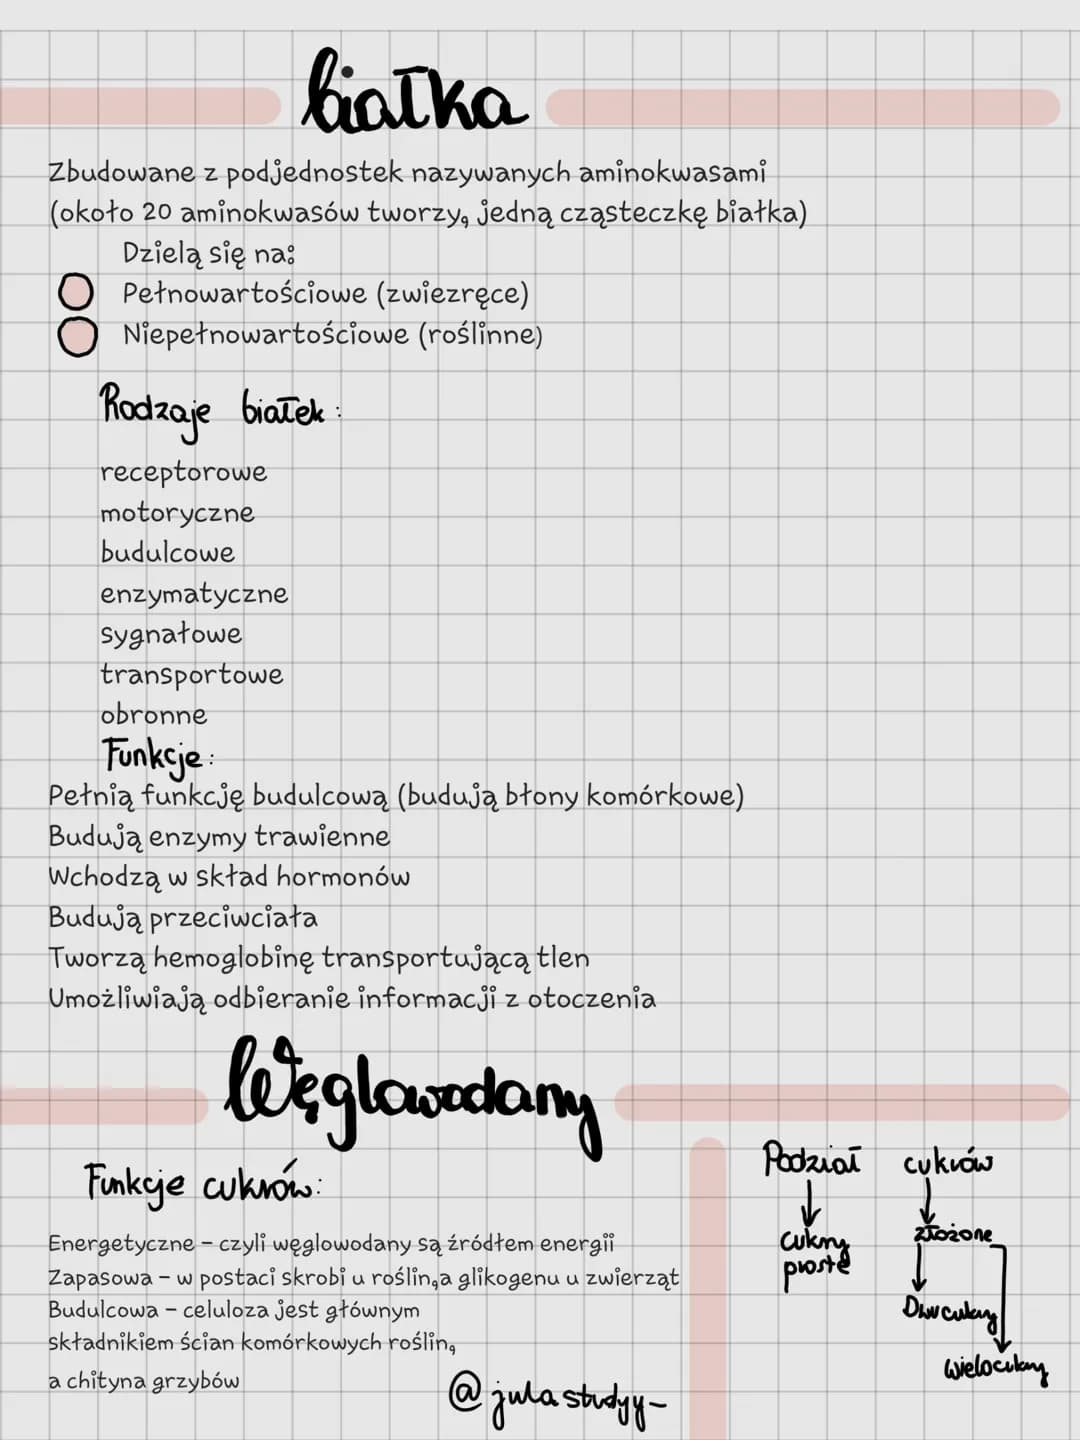 białka
Zbudowane z podjednostek nazywanych aminokwasami
(około 20 aminokwasów tworzy, jedną cząsteczkę białka)
Dzielą się na:
Pełnowartościowe (zwiezręce)
Niepełnowartościowe (roślinne)
Rodzaje białek:
receptorowe
motoryczne
budulcowe
enzymatyczne
sygnałowe
transportowe
obronne
Funkcje:
Pełnią funkcję budulcową (budują błony komórkowe)
Budują enzymy trawienne
Wchodzą w skład hormonów
Budują przeciwciała
Tworzą hemoglobinę transportującą tlen
Umożliwiają odbieranie informacji z otoczenia
Węglowodany
Funkcje cukrów:
Energetyczne – czyli węglowodany są źródłem energii
Zapasowa – w postaci skrobi u roślin,a glikogenu u zwierząt
Budulcowa – celuloza jest głównym
składnikiem ścian komórkowych roślin,
a chityna grzybów
@julastudyy_
Podział cukrów
cukry
proste
złożone
Dwucukry
wielocukry